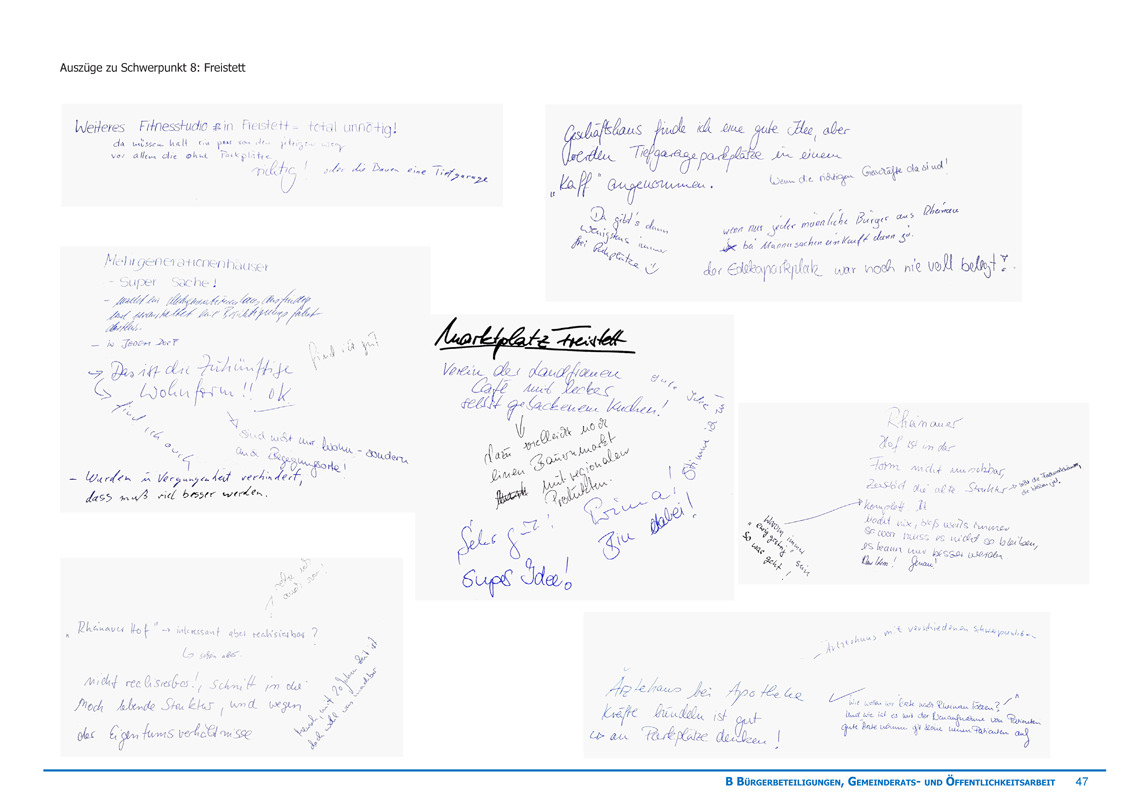 Auszüge zu Schwerpunkt 8: Freistett
Weiteres Fitnesstudio in Freistett = total unnötig!
da müssen halt ein paar von den jetzigen weg
vor allem die ohne Parkplätze
richtig! oder die Bauen eine Tiefgarage
Geschäftshaus finde ich eine gute Idee, aber
werden Tiefgarageparkplätze in einem
„Kaff" angenommen.
Wenn die richtigen Geschäfte da sind!
Da gibt's dann
wenigstens immer
frei Parkplätze
wenn nur jeder männliche Bürger aus Rheinau
bei Männersachen einkauft dann ja.
der Edekaparkplatz war noch nie voll belegt?
Mehrgenerationenhäuser
- Super Sache!
- in jedem Dorf
find ich gut
→ Das ist die Zukünftige
Wohnform!! OK
find ich auch
sind nicht nur Wohn- sondern
auch Begegnungsorte!
- Wurden in Vergangenheit verhindert,
dass muß viel besser werden.
Marktplatz Freistett
Verein der Landfrauen
Café mit lecker
selbst gebackenem Kuchen!
dazu vielleicht noch
einen Bauernmarkt
mit regionalen
Produkten.
Sehr gut!
Prima!
Bin dabei!
Super Idee!
Rheinauer
Hof ist in der
Form nicht umsetzbar,
zerstört die alte Struktur
komplett
Macht nix, bloß weils immer
so war muss es nicht so bleiben,
es kann nur besser werden
Genau!
Warum immer
so war gut!
„Rheinauer Hof" → interessant aber realisierbar?
nicht realisierbar!, schnitt in die
noch lebende Struktur, und wegen
der Eigentumsverhältnisse
Ärztehaus mit verschiedenen Schwerpunkten
Ärztehaus bei Apotheke
Kräfte bündeln ist gut
an Parkplätze denken!
und wie ist es mit der Neuaufnahme von Patienten
gute Ärzte nehmen oft keine neuen Patienten auf
B Bürgerbeteiligungen, Gemeinderats- und Öffentlichkeitsarbeit 47